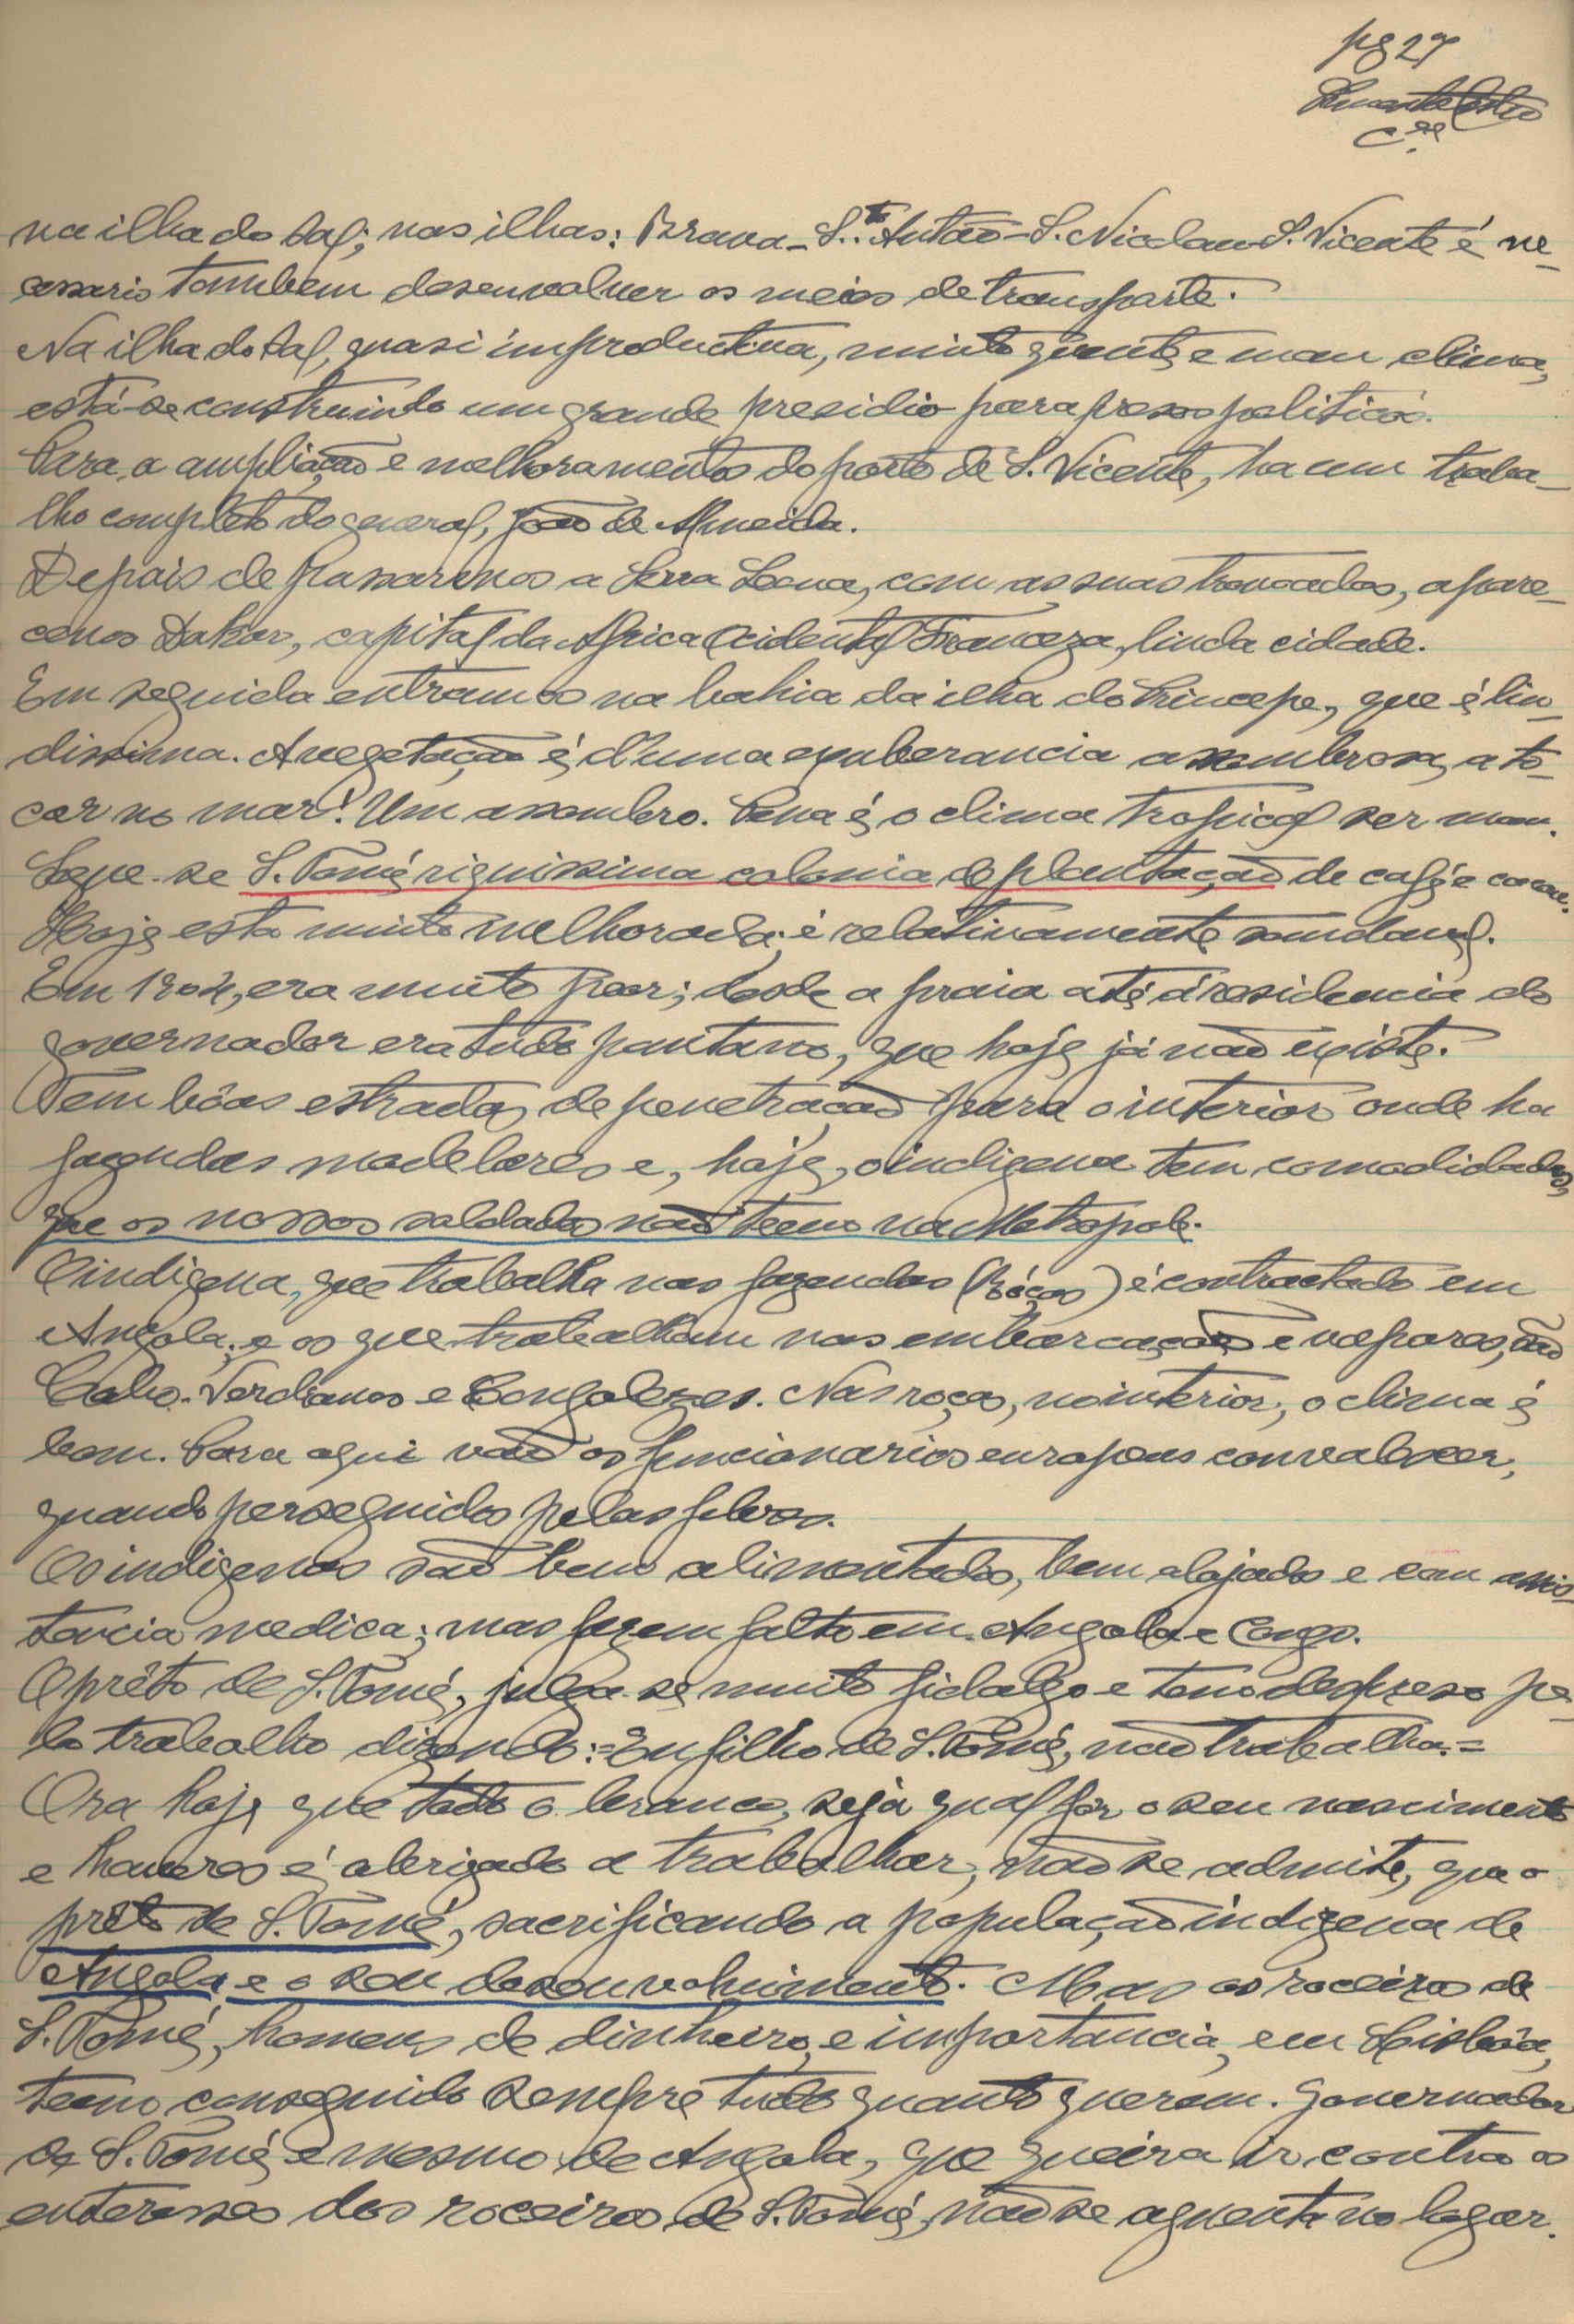 pg 27
C.el
na ilha do Sal; nas ilhas: Brava - S.to Antão - S. Nicolau - S. Vicente é ne-
cessario tambem desenvolver os meios de transporte.
Na ilha do Sal, quasi improductiva, muito quente e mau clima,
está-se construindo um grande presidio para presos politicos.
Para a ampliação e melhoramentos do porto de S. Vicente, ha um traba-
lho completo do general, João de Almeida.
Depois de passarmos a Serra Leoa, com as suas trovoadas, apare-
ce-nos Dakar, capital da Africa Ocidental Franceza, linda cidade.
Em seguida entramos na bahia da ilha do Princepe, que é lin-
dissima. A vegetação é d'uma exuberancia assombrosa, a to-
car no mar! Um assombro. Pena é, o clima tropical ser mau.
Segue-se S. Tomé, riquissima colonia de plantação de café e cacau.
Hoje esta muito melhorada; é relativamente saudavel.
Em 1904, era muito peor; desde a praia até á residencia do
governador era tudo pantano, que hoje já não existe.
Tem bôas estradas de penetração para o interior onde ha
fazendas modelares e, hoje, o indigena tem comodidades,
que os nossos soldados não teem na Metropole.
O indigena, que trabalha nas fazendas (Róças) é contractado em
Angola; e os que trabalham nas embarcações e vapores, são
Cabo-Verdianos e Congolezes. Nas roças, no interior, o clima é
bom. Para aqui vão os funcionarios europeus convalescer,
quando perseguidos pelas febres.
Os indigenas são bem alimentados, bem alojados e com assis-
tencia medica; mas fazem falta em Angola e Congo.
O prêto de S. Tomé, julga-se muito fidalgo e tem despreso pe-
lo trabalho dizendo: = Eu filho de S. Tomé, não trabalha. =
Ora hoje que todo o branco, seja qual fôr o seu nascimento
e haveres é obrigado a trabalhar, não se admite, que o
prêto de S. Tomé, sacrificando a população indigena de
Angola, e o seu desenvolvimento. Mas os roceiros de
S. Tomé, homens de dinheiro, e importancia, em Lisbôa,
teem conseguido sempre tudo quanto querem. Governador
de S. Tomé, e mesmo de Angola, que queira ir contra os
enteresses dos roceiros de S. Tomé, não se aguenta no logar.